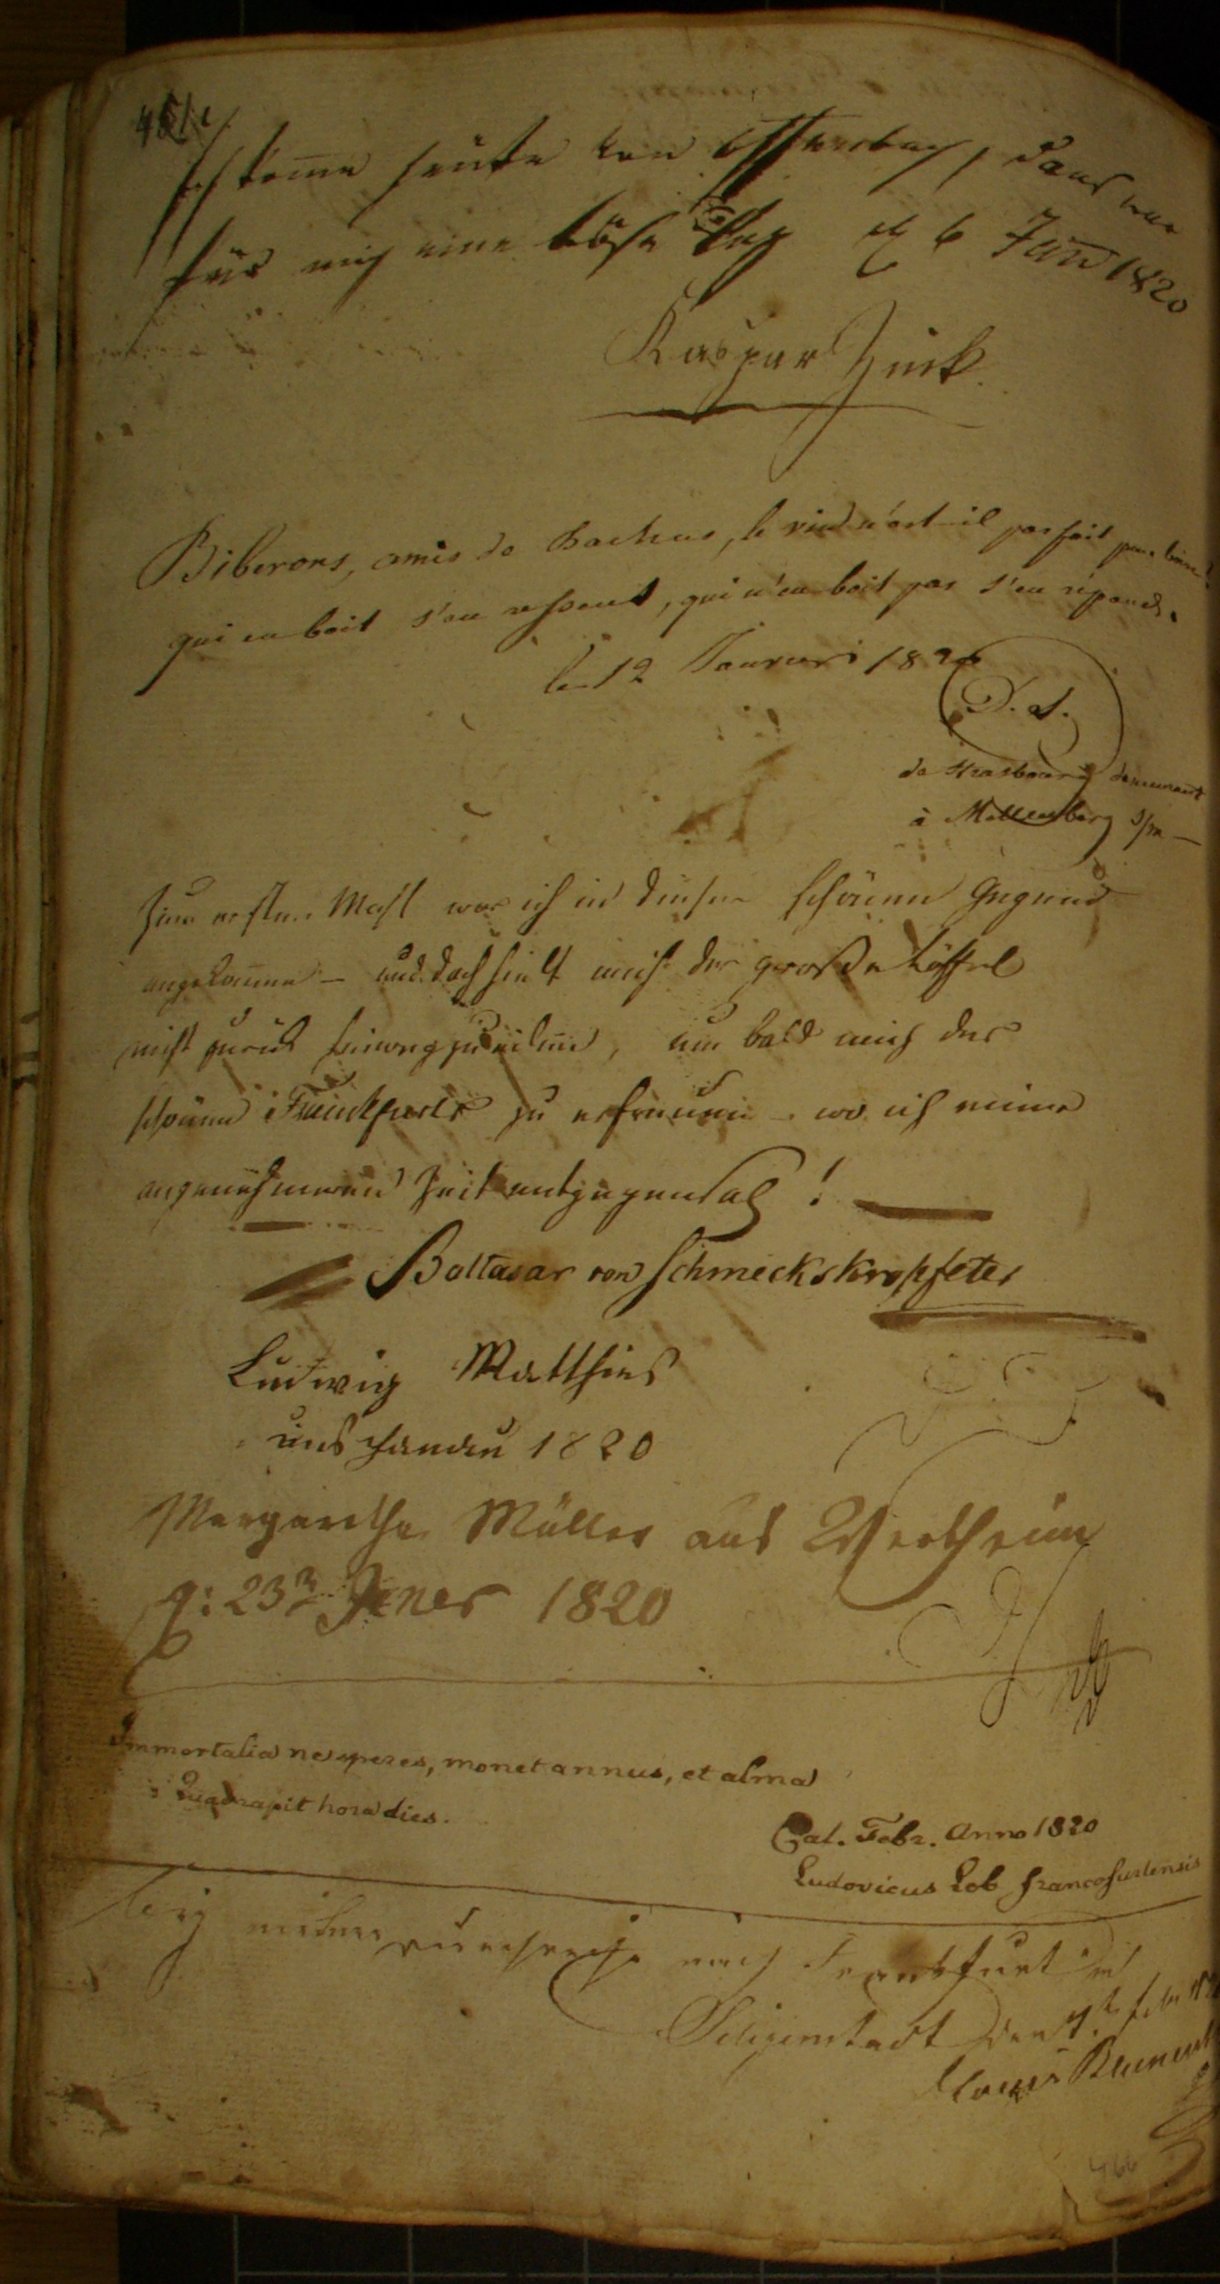 Ich kom̄e heute von Offenbach, das war
für mich eine böse Weg 6 Jan 1820
Kaspar Zink
Biberons, amis de Bachus, le vin n'est-il parfait pour boire!
qui en boit s'en ressent, qui n'en boit pas s'en répand.
le 12 Januari 1820
D. S.
de Strasbourg demeurant
à Miltenberg
Zum ersten Mahl war ich in dieser schönen Gegend
angekom̄en – und doch hielt mich der große Löffel
nicht zurück hinweg zu eilen, um bald mich der
schönen Frankfurts zu erfreuen – wo ich einer
angenehmeren Zeit entgegensah!
Baltasar von Schmeckskropfeter
Ludwig Matthies
aus Hanau 1820
Margaretha Müller aus Wertheim
23 Jener 1820
Immortalia ne speres, monet annus, et almum
Quae rapit hora diem.
Cal. Febr. Anno 1820
Ludovicus Lob francofurtensis
bey meiner durchreiße nach Frankfurt
Seligenstadt den 7 feb
466